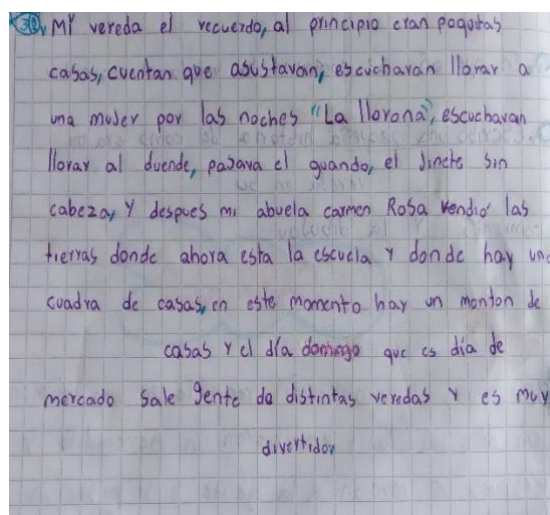 3. Mi vereda el recuerdo, al principio eran poquitas
casas, cuentan que asustavan, escuchavan llorar a
una mujer por las noches "La llorona", escuchavan
llorar al duende, pasava el guando, el jinete sin
cabeza, Y despues mi abuela carmen Rosa vendió las
tierras donde ahora esta la escuela Y donde hay una
cuadra de casas, en este momento hay un monton de
casas Y el día domingo que es día de
mercado sale gente de distintas veredas Y es muy
divertido